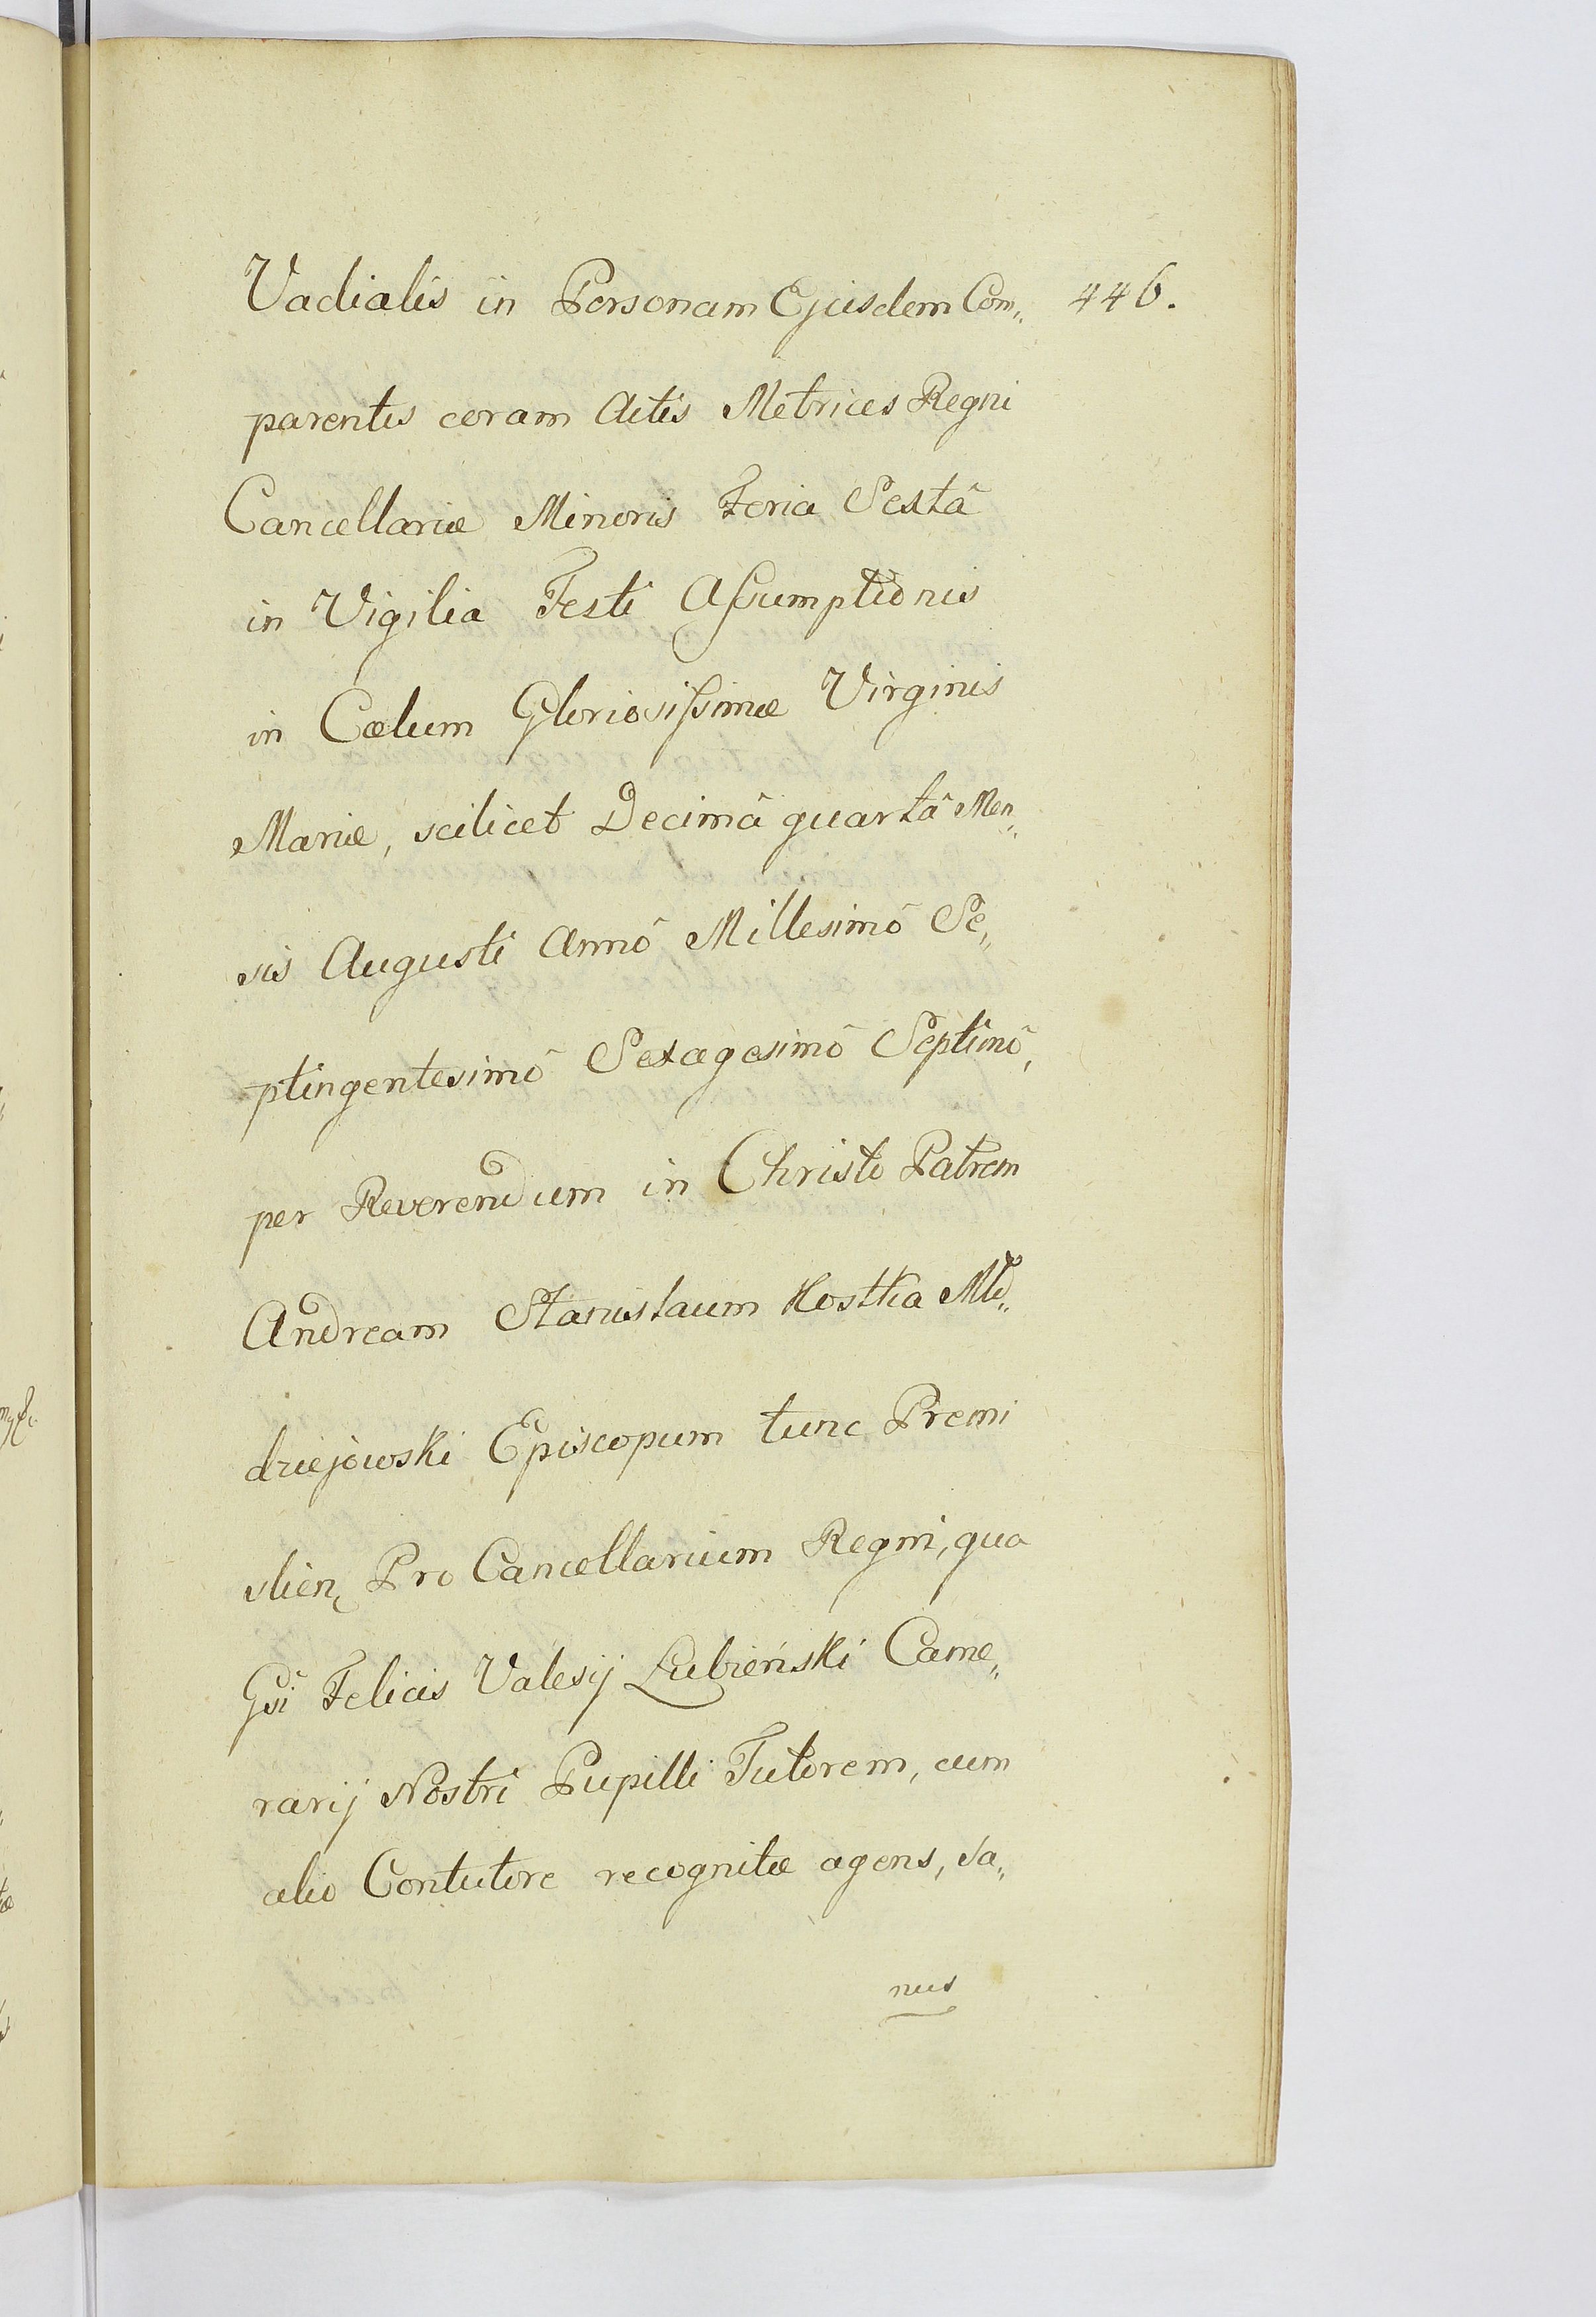 Vadialis in Personam Ejusdem Com„ 446.
parentis coram Actis Metrices Regni
Cancellariæ Minoris Feria Sextâ
in Vigilia Festi Aſsumptionis
in Cœlum Gloriosiſsimæ Virginis
Mariæ, scilicet Decimâ quartâ Men„
sis Augusti Annô Millesimô Se„
ptingentesimô Sexagesimô Septimô,
per Reverendum in Christo Patrem
Andream Stanislaum Kostka Mło„
dziejowski Episcopum tunc Premi
slien, Pro Cancellarium Regni, qua
Gsi Felicis Valesij Łubieński Came„
rarij Nostri Pupilli Tutorem, cum
alio Contutore recognitæ agens, sa„
nus